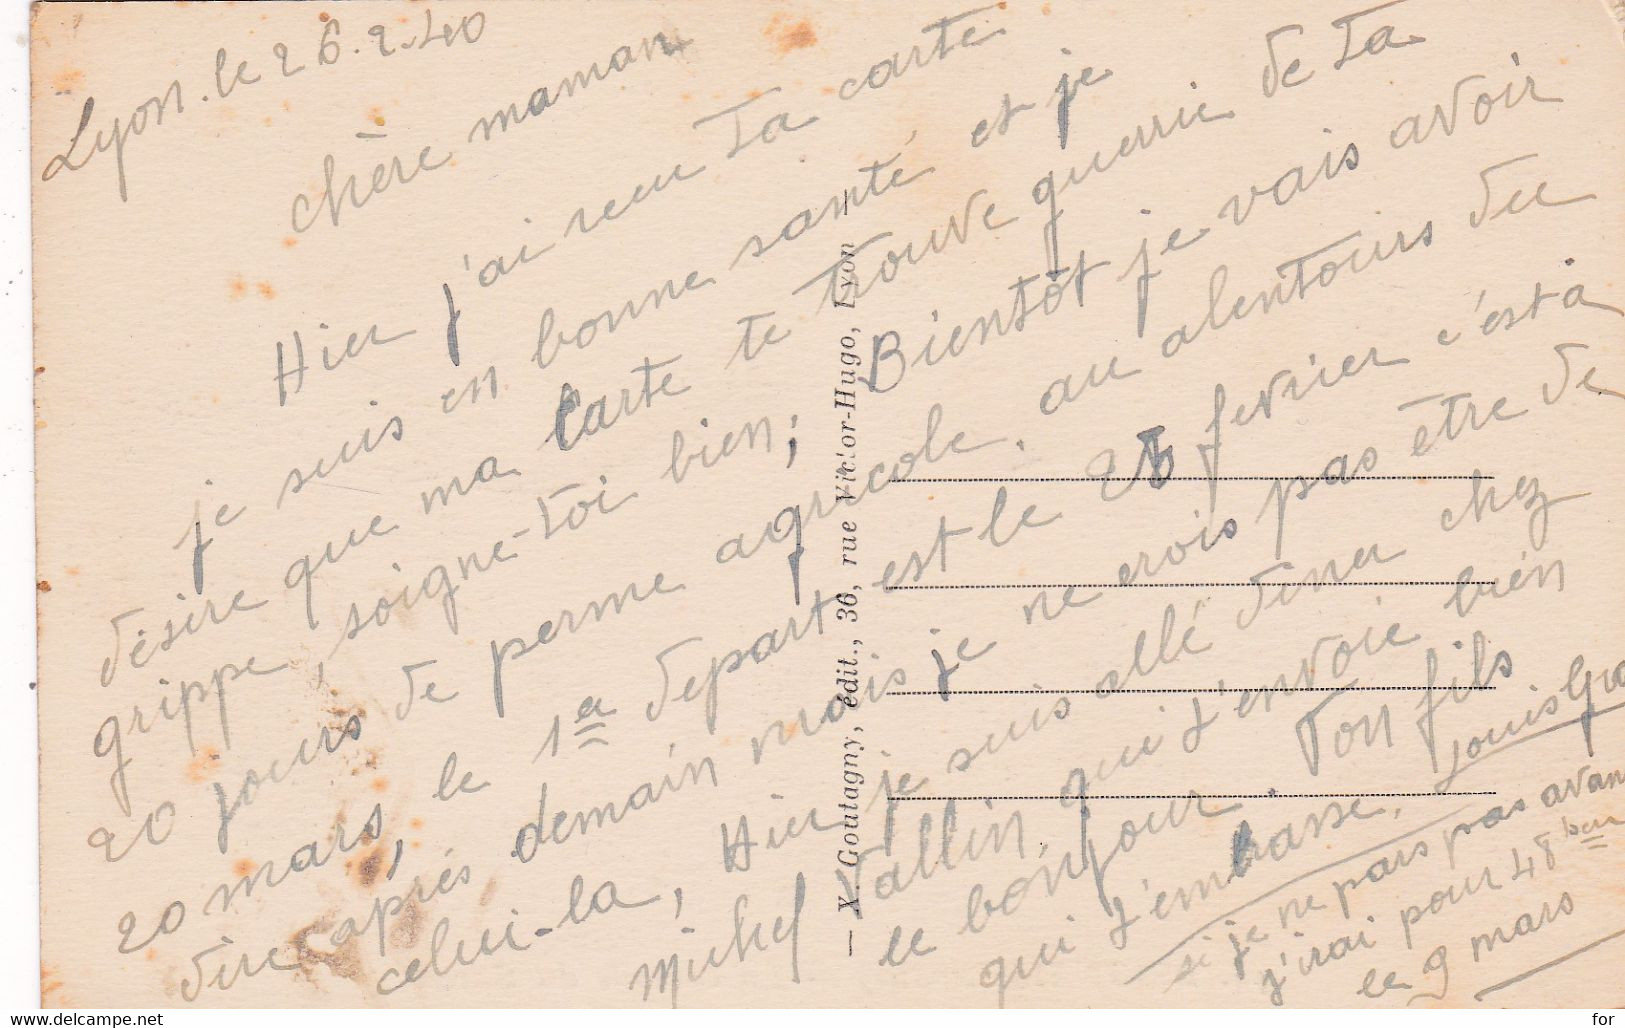 Lyon. le 26.2.40
chère maman
Hier j'ai reçu Ta carte
je suis en bonne santé et je
désire que ma carte te trouve guerrie de Ta
grippe, soigne-toi bien; Bientôt je vais avoir
20 jours de perme agricole. au alentours du
20 mars, le 1er depart est le 28 fevrier c'est à
dire après demain mais je ne crois pas être de
celui-la, Hier je suis allé diner chez
Michel Vallin qui t'envoie bien
le bonjour. Ton fils
qui t'embrasse. Louis
si je ne pars pas avan
j'irai pour 48 heu
le 9 mars
— X. Goutagny, édit., 36, rue Victor-Hugo, Lyon —
for
www.delcampe.net